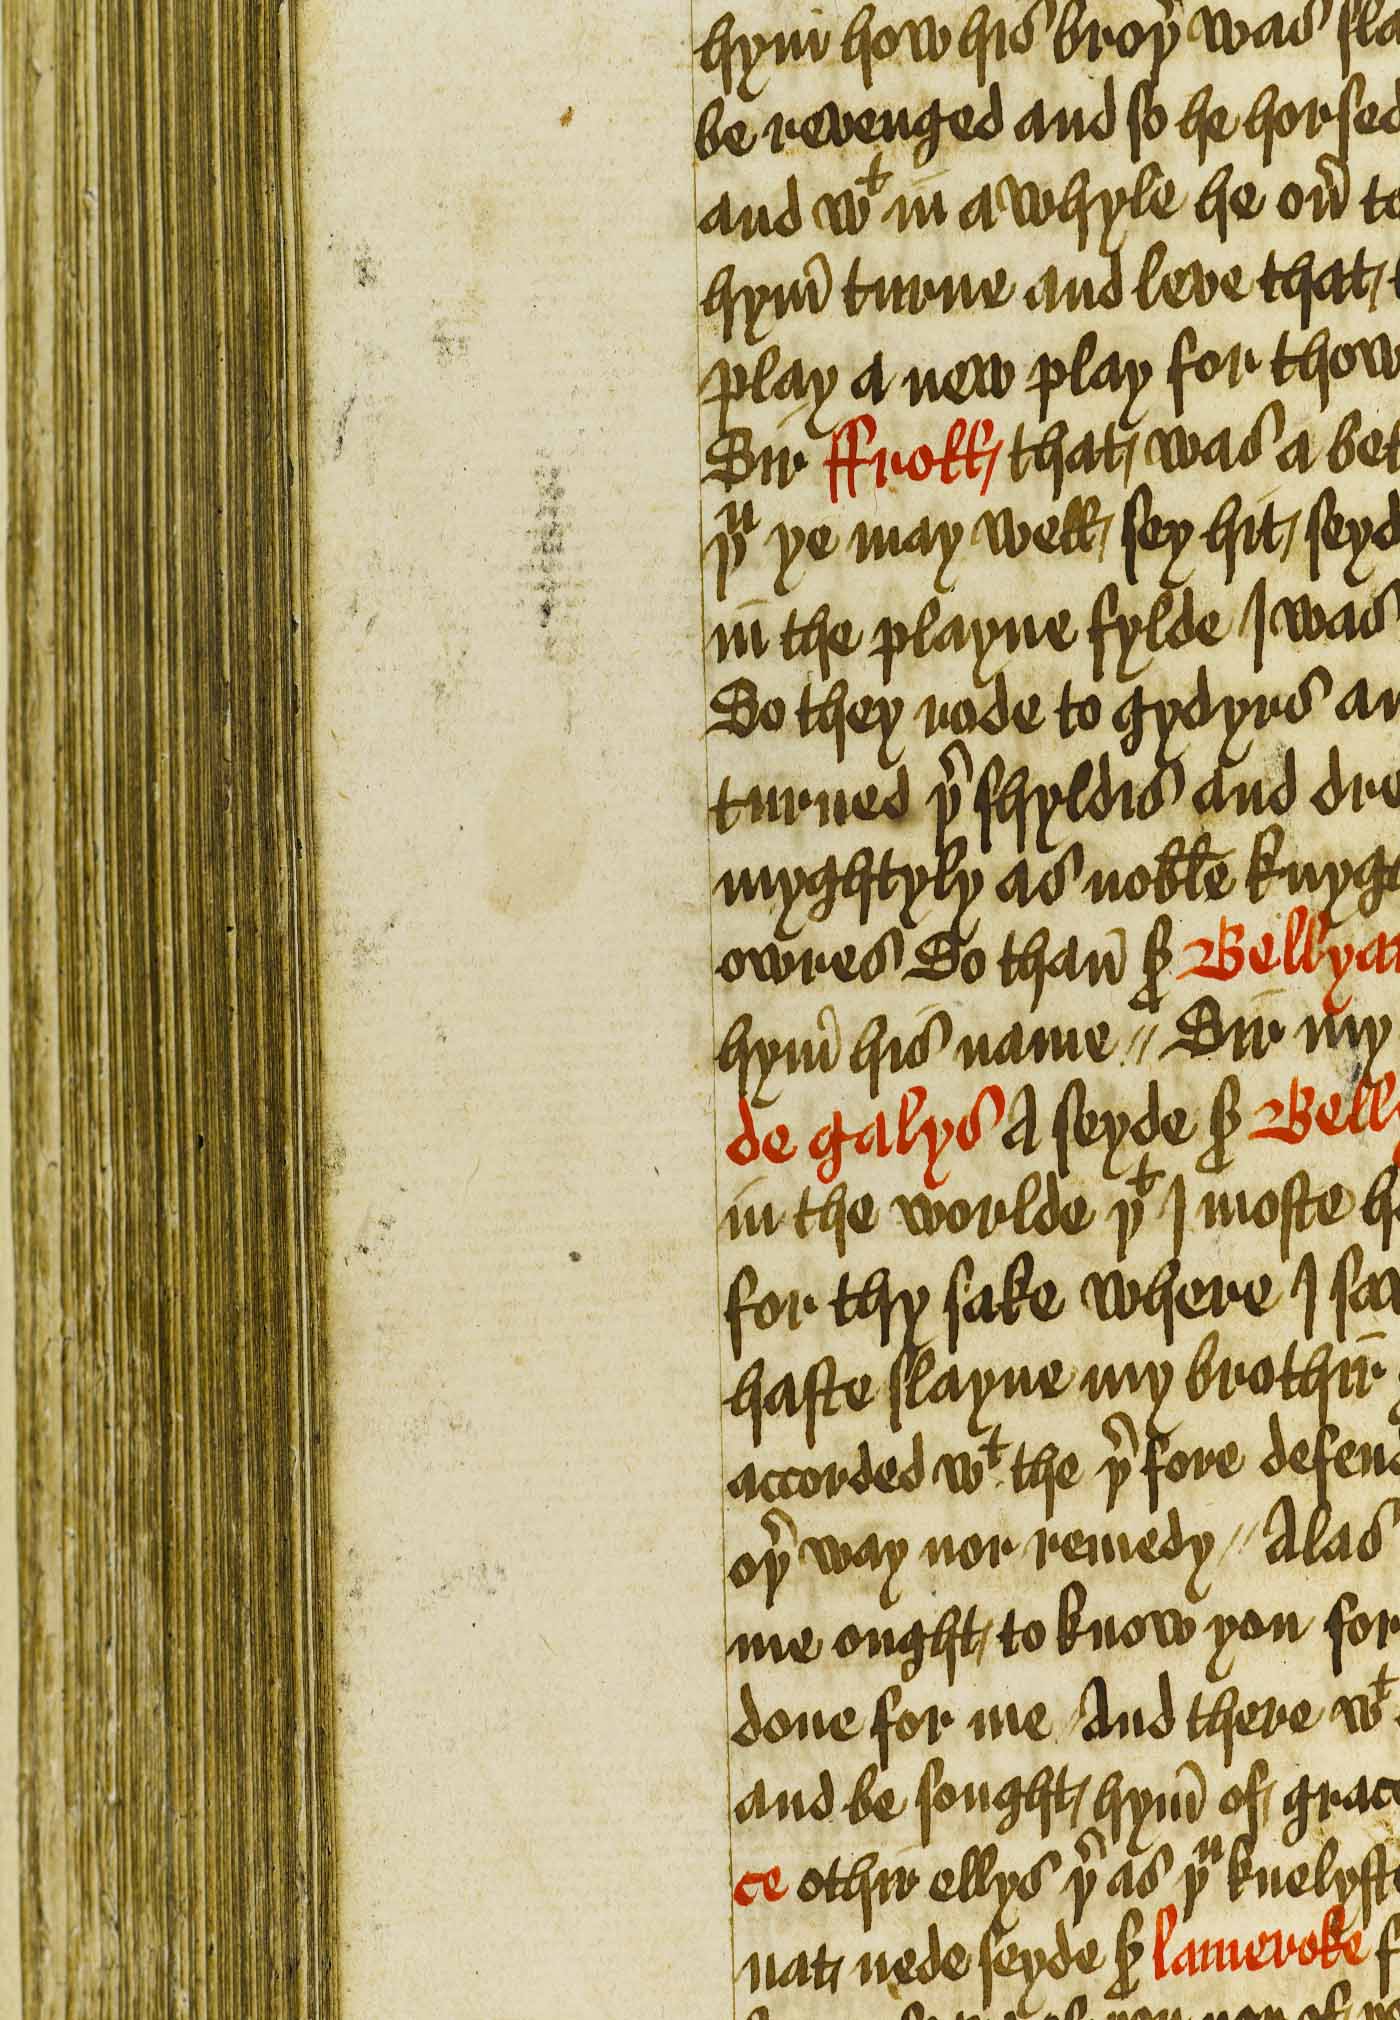 hym how his broþ was sla
be revenged and so he horsed
and wᵗ in a whyle he oū to
hym turne and leve that
play a new play for thow
Sir Froll that was a bet
þᵘ ye may well sey hit seyd
in the playne fylde I was
So they rode to gydyrs an
turned þ shyldis and dre
myghtyly as noble knyg
owres So than sr Bellyan
hym his name // Sir my
de galys A seyde sr Bell
in the worlde þᵗ I moste h
for thy sake where I sa
haste slayne my brothir
accorded wᵗ the þ fore defend
oþ way nor remedy // Alas
me ought to know you for
done for me And there wᵗ
and be sought hym of grac
ce othir ellys þ as þᵘ knelyst
nat nede seyde sr lameroke f